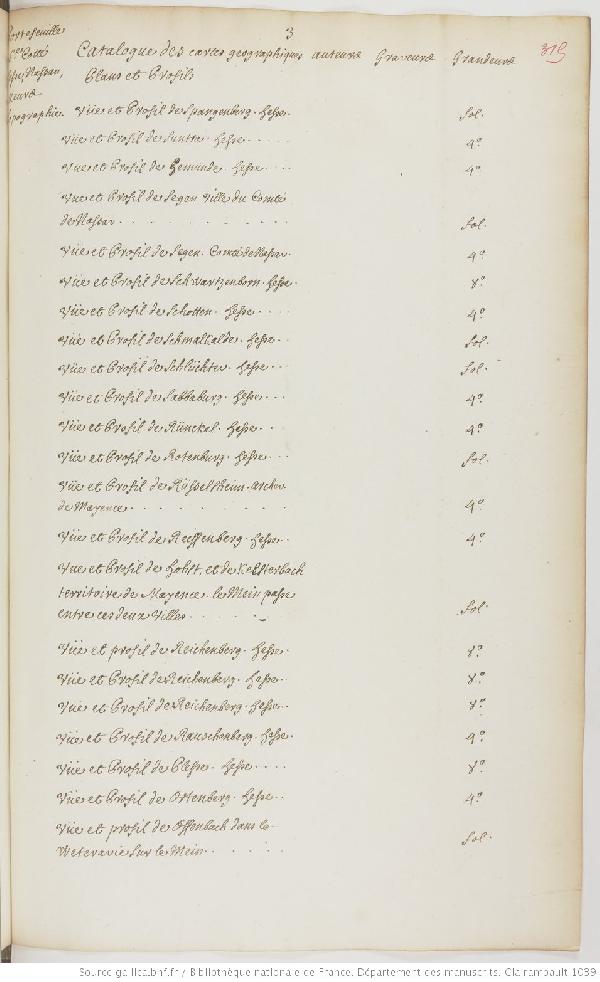 3
315
Catalogue des cartes geographiques auteurs Graveurs Grandeurs
Plans et Profils
Vüe et Profil de Spangenberg. hesse. fol.
Vüe et Profil de Suntra. hesse . . . . 4.º
Vüe et Profil de Gemunde. hesse . . . . 4.º
Vüe et Profil de Segen Ville du Comté
de Nassau . . . . . . . fol.
Vüe et Profil de Segen. Comté de Nassau. 4.º
Vüe et Profil de Schwartzenborn. hesse. 8.º
Vüe et Profil de Schotten. hesse . . . . 4.º
Vüe et Profil de Schmalkalde. hesse . . fol.
Vüe et Profil de Schluchter. hesse . . . fol.
Vüe et Profil de Sabbaburg. hesse . . . 4.º
Vüe et Profil de Rünckel. hesse . . 4.º
Vüe et Profil de Rotenburg. hesse . . . fol.
Vüe et Profil de Rüsselsheim.
de Mayence . . . . . . . 4.º
Vüe et Profil de Reiffenberg. hesse . . 4.º
Vüe et Profil de hobst, et de Kelsterbach
territoire de Mayence. le Mein passe
entre ces deux Villes . . . . . fol.
Vüe et profil de Reichenberg. hesse. 8.º
Vüe et Profil de Reichenberg. hesse . . 8.º
Vüe et Profil de Reichenberg. hesse . . 8.º
Vüe et Profil de Rauschenberg. hesse. 4.º
Vüe et Profil de Plesse. hesse . . . . 8.º
Vüe et Profil de Ortenberg. hesse . . 4.º
Vüe et profil de Offenbach dans la
Weteravie sur le Mein . . . . . fol.
Source gallica.bnf.fr / Bibliothèque nationale de France. Département des manuscrits. Clairambault 1039